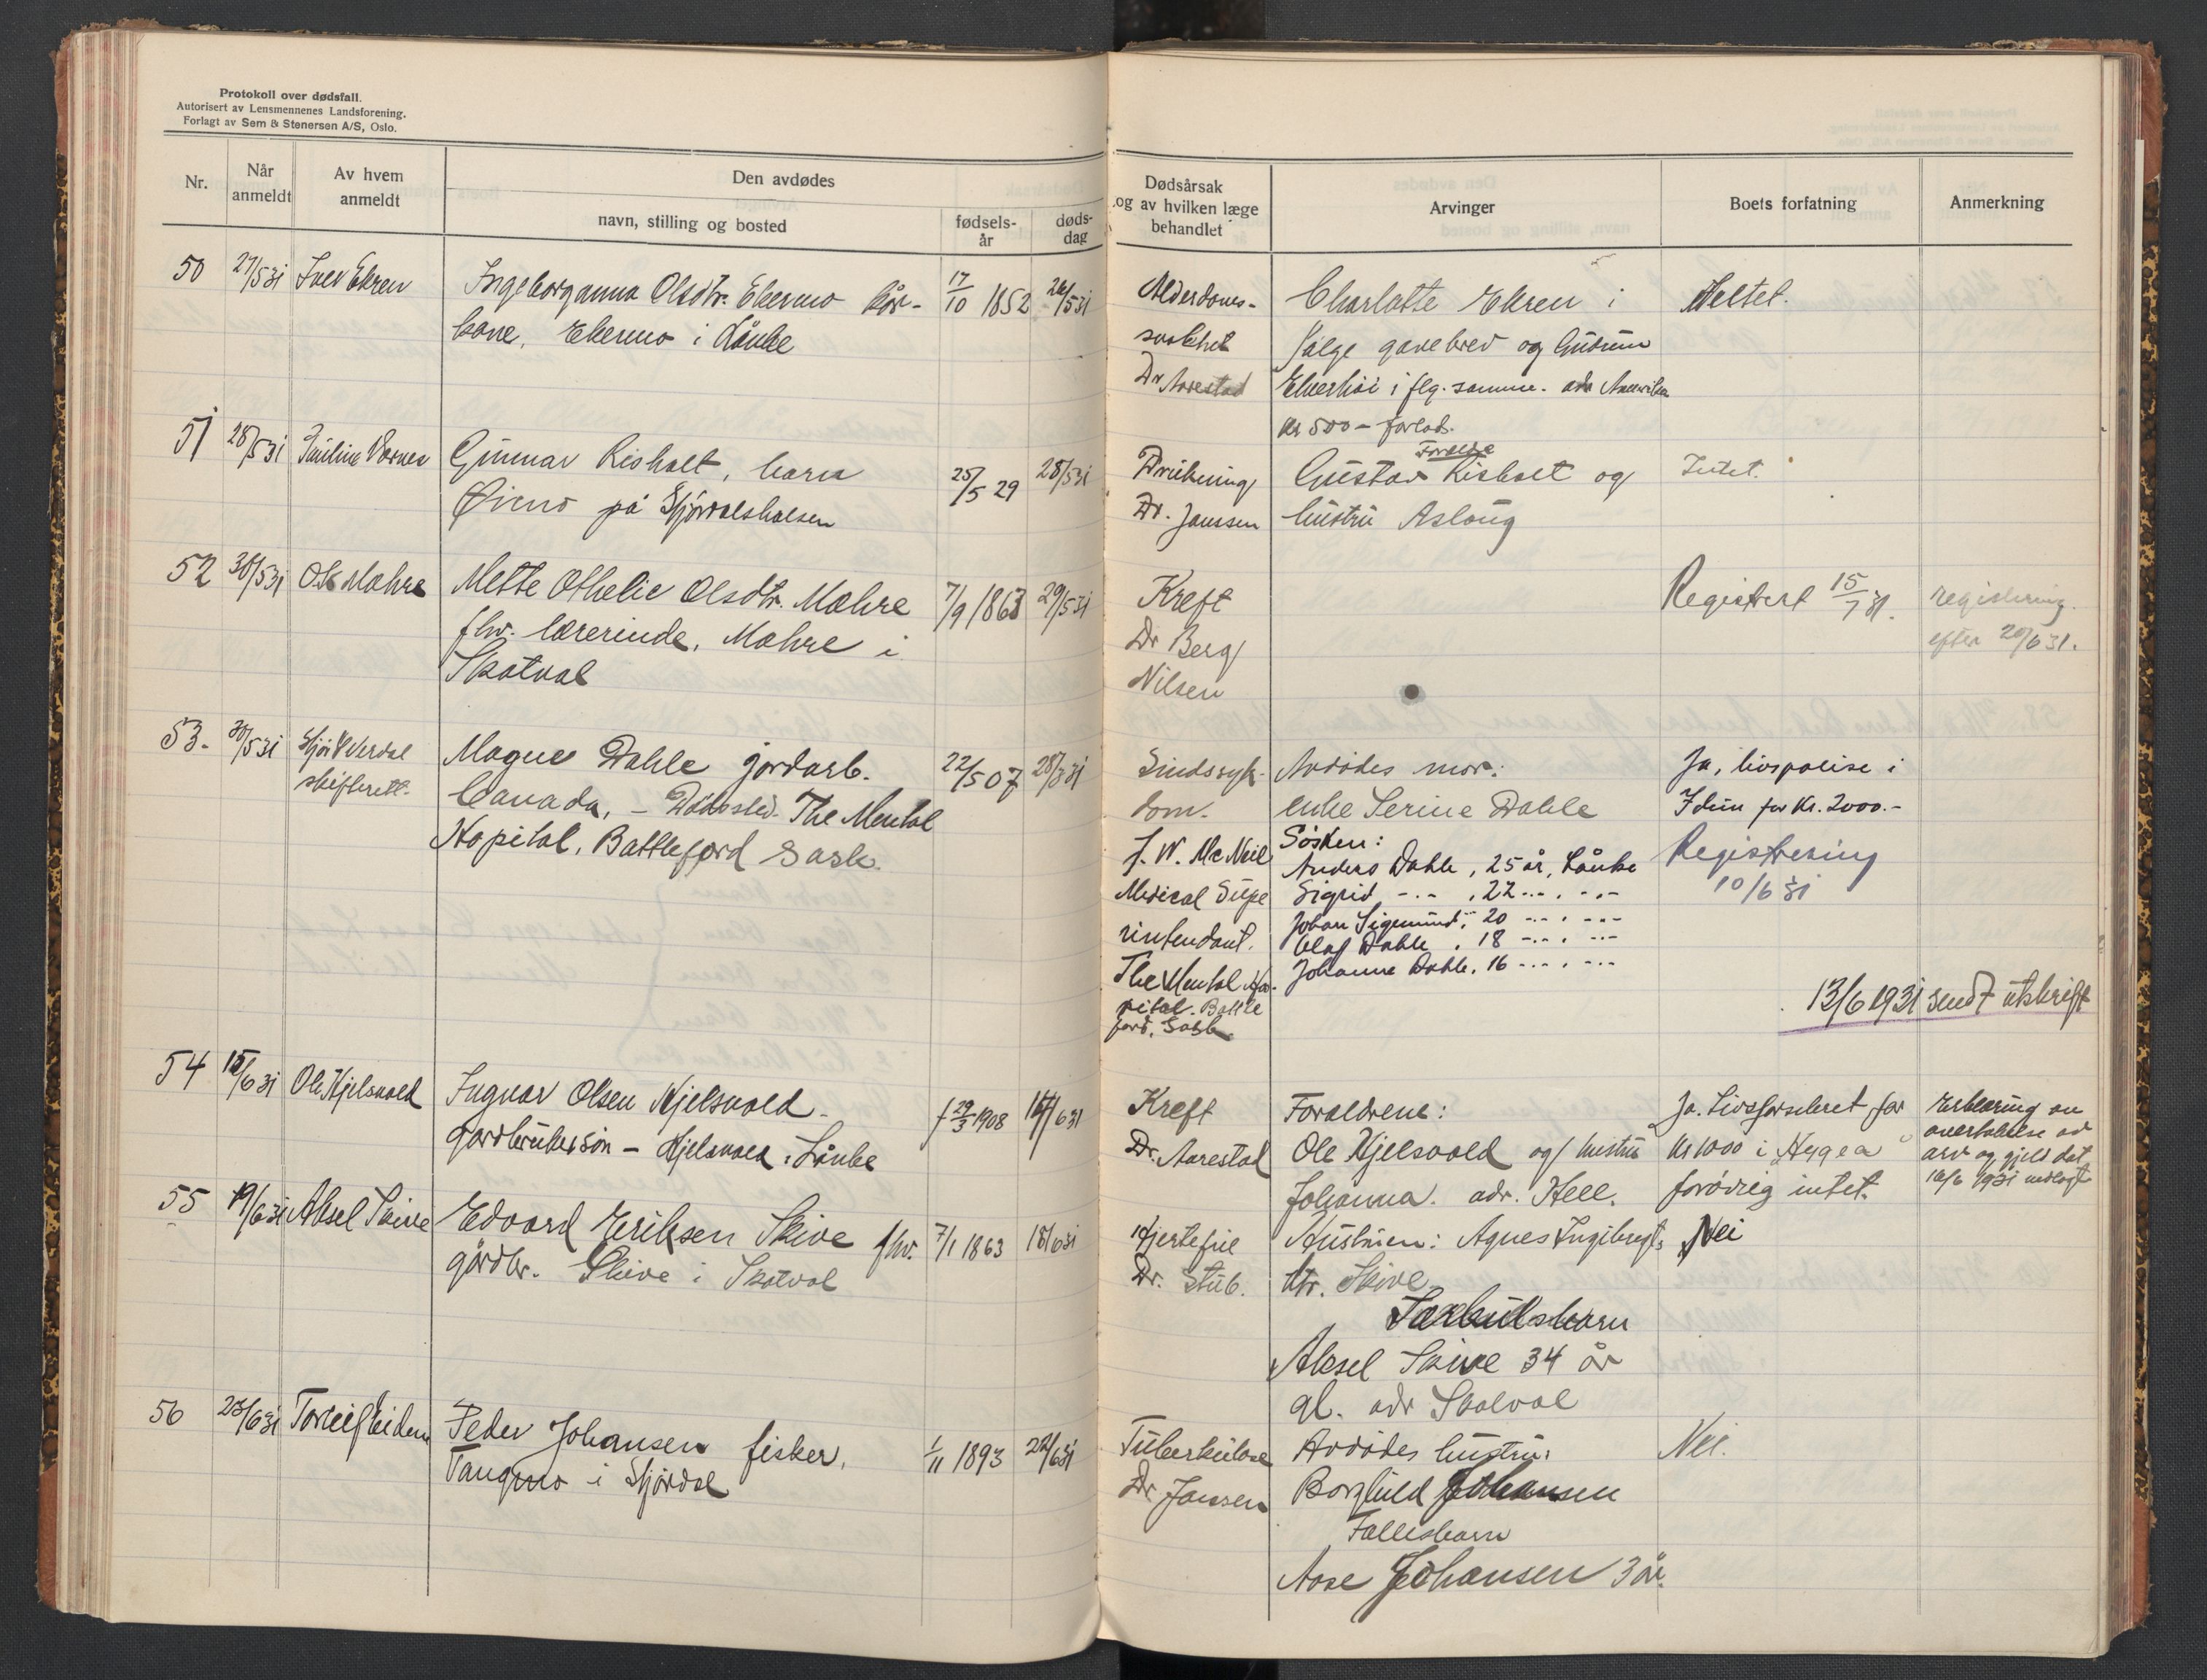 Protokoll over dødsfall.
Autorisert av Lensmennenes Landsforening.
Forlagt av Sem & Stenersen A/S, Oslo.
Nr.
Når anmeldt
Av hvem anmeldt
Den avdødes
navn, stilling og bosted
fødsels-år
døds-dag
Dødsårsak og av hvilken læge behandlet
Arvinger
Boets forfatning
Anmerkning
50 27/5 31 Iver Ekren
Ingeborganna Olsdtr. Ekermo kår-
kone, Ekermo i Lånke
17/10 1852 26/5 31
Alderdoms-
svakhet
Dr Aarestad
Charlotte Ekren i
følge gavebrev og Gudrun
Ekerhøi i flg. samme. adr Amerika
kr 500 - forlods.
Heltet.
51 28/5 31 Pauline Værnes
Gunnar Risholt, barn
Øimo på Stjørdalshalsen
25/5 29 28/5 31
Drukning
Dr. Janssen
Foreldre
Gustav Risholt og
hustru Aslaug
Intet.
52 30/5 31 O.K. Mæhre
Mette Othelie Olsdtr. Mæhre
fhv. lærerinde, Mæhre i
Skatval
7/9 1863 29/5 31
Kreft
Dr Berg
Nilsen
Registrert 15/7 31.
registrering
efter 20/6 31.
53. 30/5 31 Stjør & Verdal
skifterett.
Magne Dahle jordarb.
Canada, - Dødssted. The Mental
Hopital, Battleford Sask.
22/5 07 28/3 31
Sindssyk-
dom.
J. W. Mc Neil
Medical Supe
rintendant.
The Mental Hos-
pital. Battle
ford, Sask.
Avdødes mor:
enke Serine Dahle
Søsken:
Anders Dahle, 25 år, Lånke
Sigrid -"- , 22 -"- , -"-
Johan Sigmund, 20 -"- , -"-
Olaf Dahle , 18 -"- , -"-
Johanne Dahle, 16 -"- , -"-
Ja, livspolise i
Idun for Kr. 2000.-
Registrering
10/6 31
13/6 1931 sendt utskrift
54 18/6 31 Ole Hjelsvold
Ingvar Olsen Hjelsvold -
gardbrukersøn - Hjelsvold i Lånke
f 29/3 1908
Kreft
Dr. Aarestad
Foreldrene:
Ole Hjelsvold og hustru
Johanna. adr. Hell.
Ja. Livsforsikret for
kr 1000 i "Hygea"
forøvrig intet.
Erklæring om
overtakelse av
arv og gjeld dat
18/6 1931 vedlagt
55 19/6 31 Aksel Skive
Edvard Eriksen Skive fhv.
gårdbr. Skive i Skatval
7/1 1863 18/6 31
Hjertefeil
Dr. Stub.
Hustruen: Agnes Ingebrigts
dtr. Skive
Særkulsbarn
Aksel Skive 34 år
gl. adr Skatval
Nei
56 23/6 31 Torleif Eidem
Peder Johansen fisker,
Tangmo i Stjørdal
1/11 1893 22/6 31
Tuberkulose
Dr. Janssen
Avdødes hustru:
Borghild Johansen
Fellesbarn
Aase Johansen 3 år.
Nei.